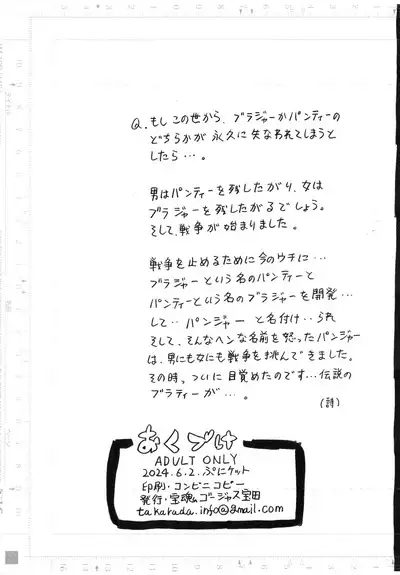 Q. もしこの世から、ブラジャーかパンティーの
どちらかが永久に失なわれてしまうと
したら…。
男はパンティーを残したがり、女は
ブラジャーを残したがるでしょう。
そして、戦争が始まりました。
戦争を止めるために今のウチに…
ブラジャーという名のパンティーと
パンティーという名のブラジャーを開発…
して‥パンジャーと名付け‥られ
そして、そんなヘンな名前を怒ったパンジャー
は、男にも女にも戦争を挑んできました。
その時、ついに目覚めたのです…伝説の
ブラティーが…。
(詩)
おくづけ
ADULT ONLY
2024.6.2.ぷにケット
印刷・コンビニコピー
発行・宝魂ゴージャス宝田
takarada.info@gmail.com